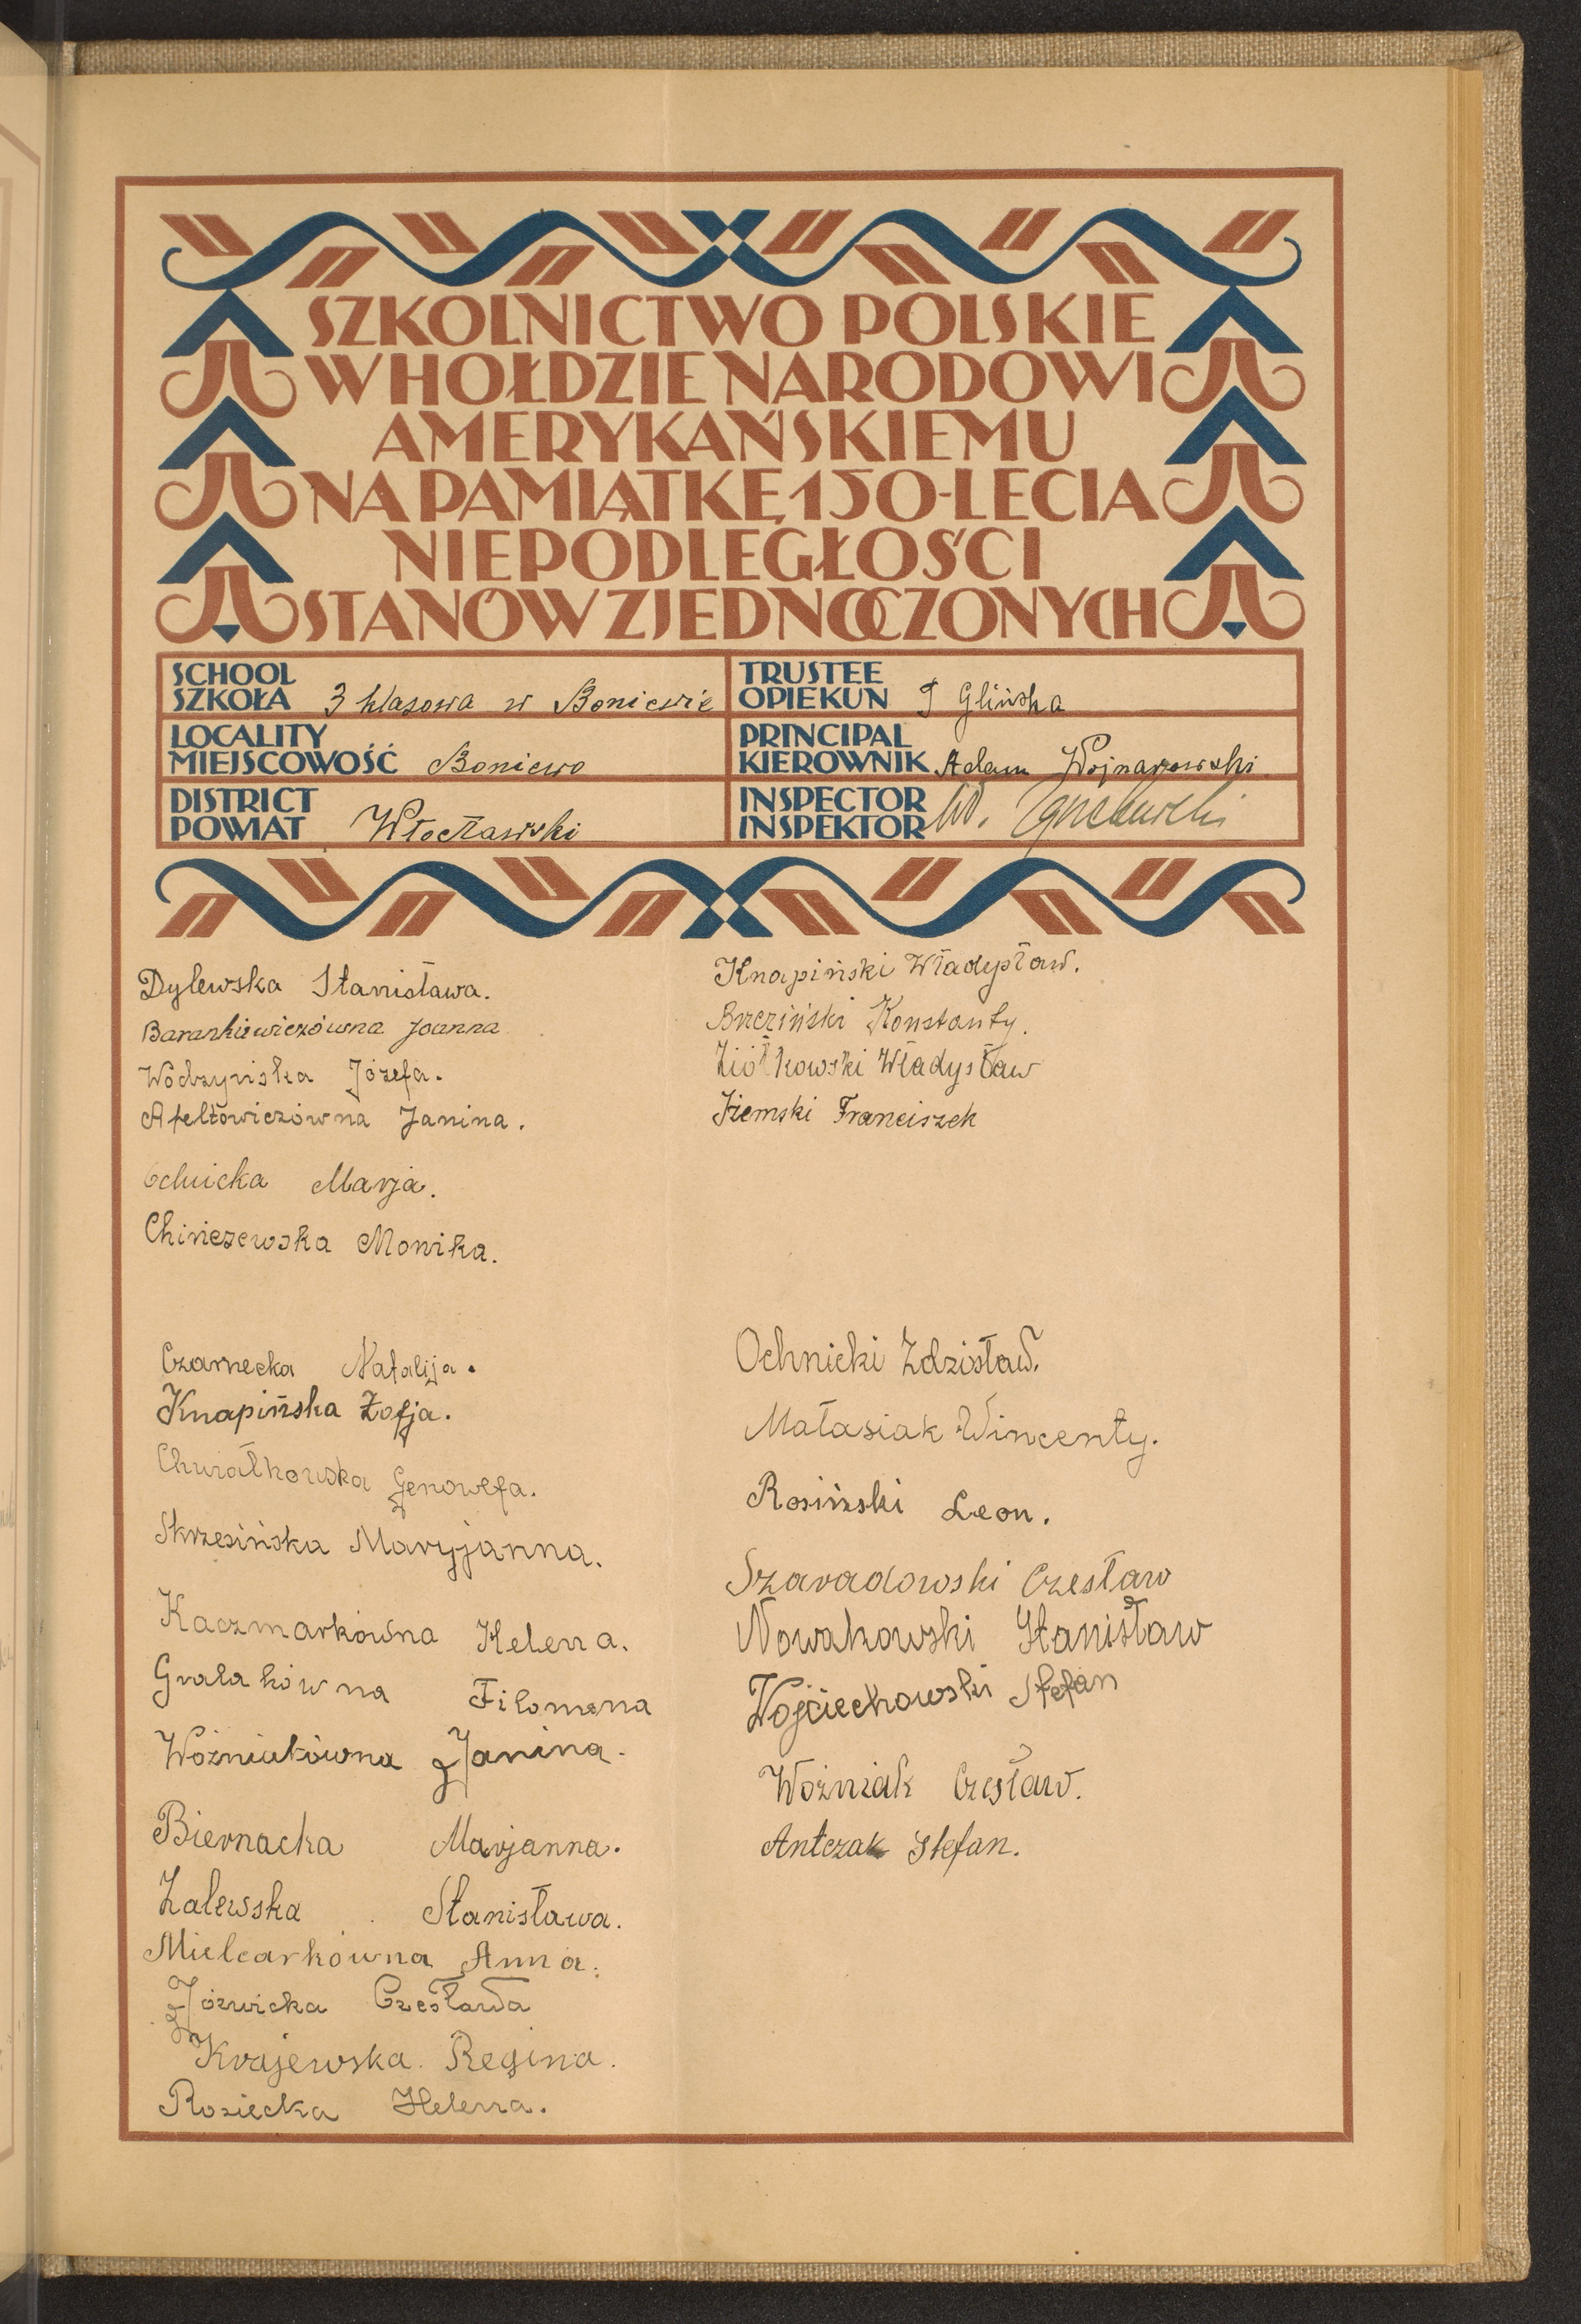 SZKOLNICTWO POLSKIE
W HOŁDZIE NARODOWI
AMERYKAŃSKIEMU
NA PAMIĄTKĘ 150-LECIA
NIEPODLEGŁOŚCI
STANÓW ZJEDNOCZONYCH
SCHOOL
SZKOŁA 3 klasowa w Boniewie
TRUSTEE
OPIEKUN J Glińska
LOCALITY
MIEJSCOWOŚĆ Boniewo
PRINCIPAL
KIEROWNIK Adam Wojnarowski
DISTRICT
POWIAT Włocławski
INSPECTOR
INSPEKTOR W.
Dylewska Stanisława.
Barankiewiczówna Joanna
Wodzyńska Józefa.
Afeltowiczówna Janina.
Ochnicka Marja.
Chińczewska Monika.
Czarnecka Natalija.
Knapińska Zofja.
Chwiałkowska Genowefa.
Skrzesińska Maryjanna.
Kaczmarkówna Helena.
Gralakówna Filomena
Woźniakówna Janina.
Biernacka Marjanna.
Zalewska Stanisława.
Mielcarkówna Anna.
Józwicka Czesława
Krajewska. Regina.
Rosiecka Helena.
Knapiński Władysław.
Brzeziński Konstanty.
Ziółkowski Władysław
Ziemski Franciszek
Ochnicki Zdzisław.
Małasiak Wincenty.
Rosiński Leon.
Szaradowski Czesław
Nowakowski Stanisław
Wojciechowski Stefan
Woźniak Czesław.
Antczak Stefan.